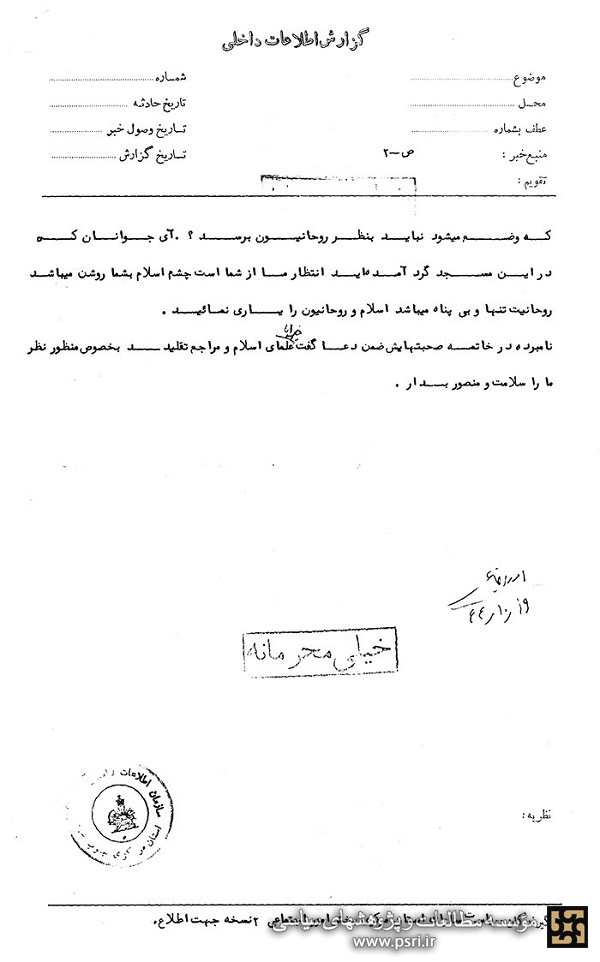 گزارش اطلاعات داخلی
موضوع
شماره
محل
تاریخ حادثه
عطف بشماره
تاریخ وصول خبر
منبع خبر :
ص-۲
تاریخ گزارش
تقویم :
که وضع میشود نباید بنظر روحانیون برسد ؟ . آی جوانان کم
در این مسجد گرد آمده اید انتظار ما از شما است چشم اسلام بشما روشن میباشد
روحانیت تنها و بی پناه میباشد اسلام و روحانیون را یاری نمائید .
نامبرده در خاتمه صحبتهایش ضمن دعا گفت خدایا علمای اسلام و مراجع تقلید بخصوص منظور نظر
ما را سلامت و منصور بدار .
۱۹ ر ۱۰ ر ۴۴
خیلی محرمانه
سازمان اطلاعات
استان مرکزی
نظریه :
۲ نسخه جهت اطلاع .
موسسه مطالعات و پژوهشهای سیاسی
www.psri.ir